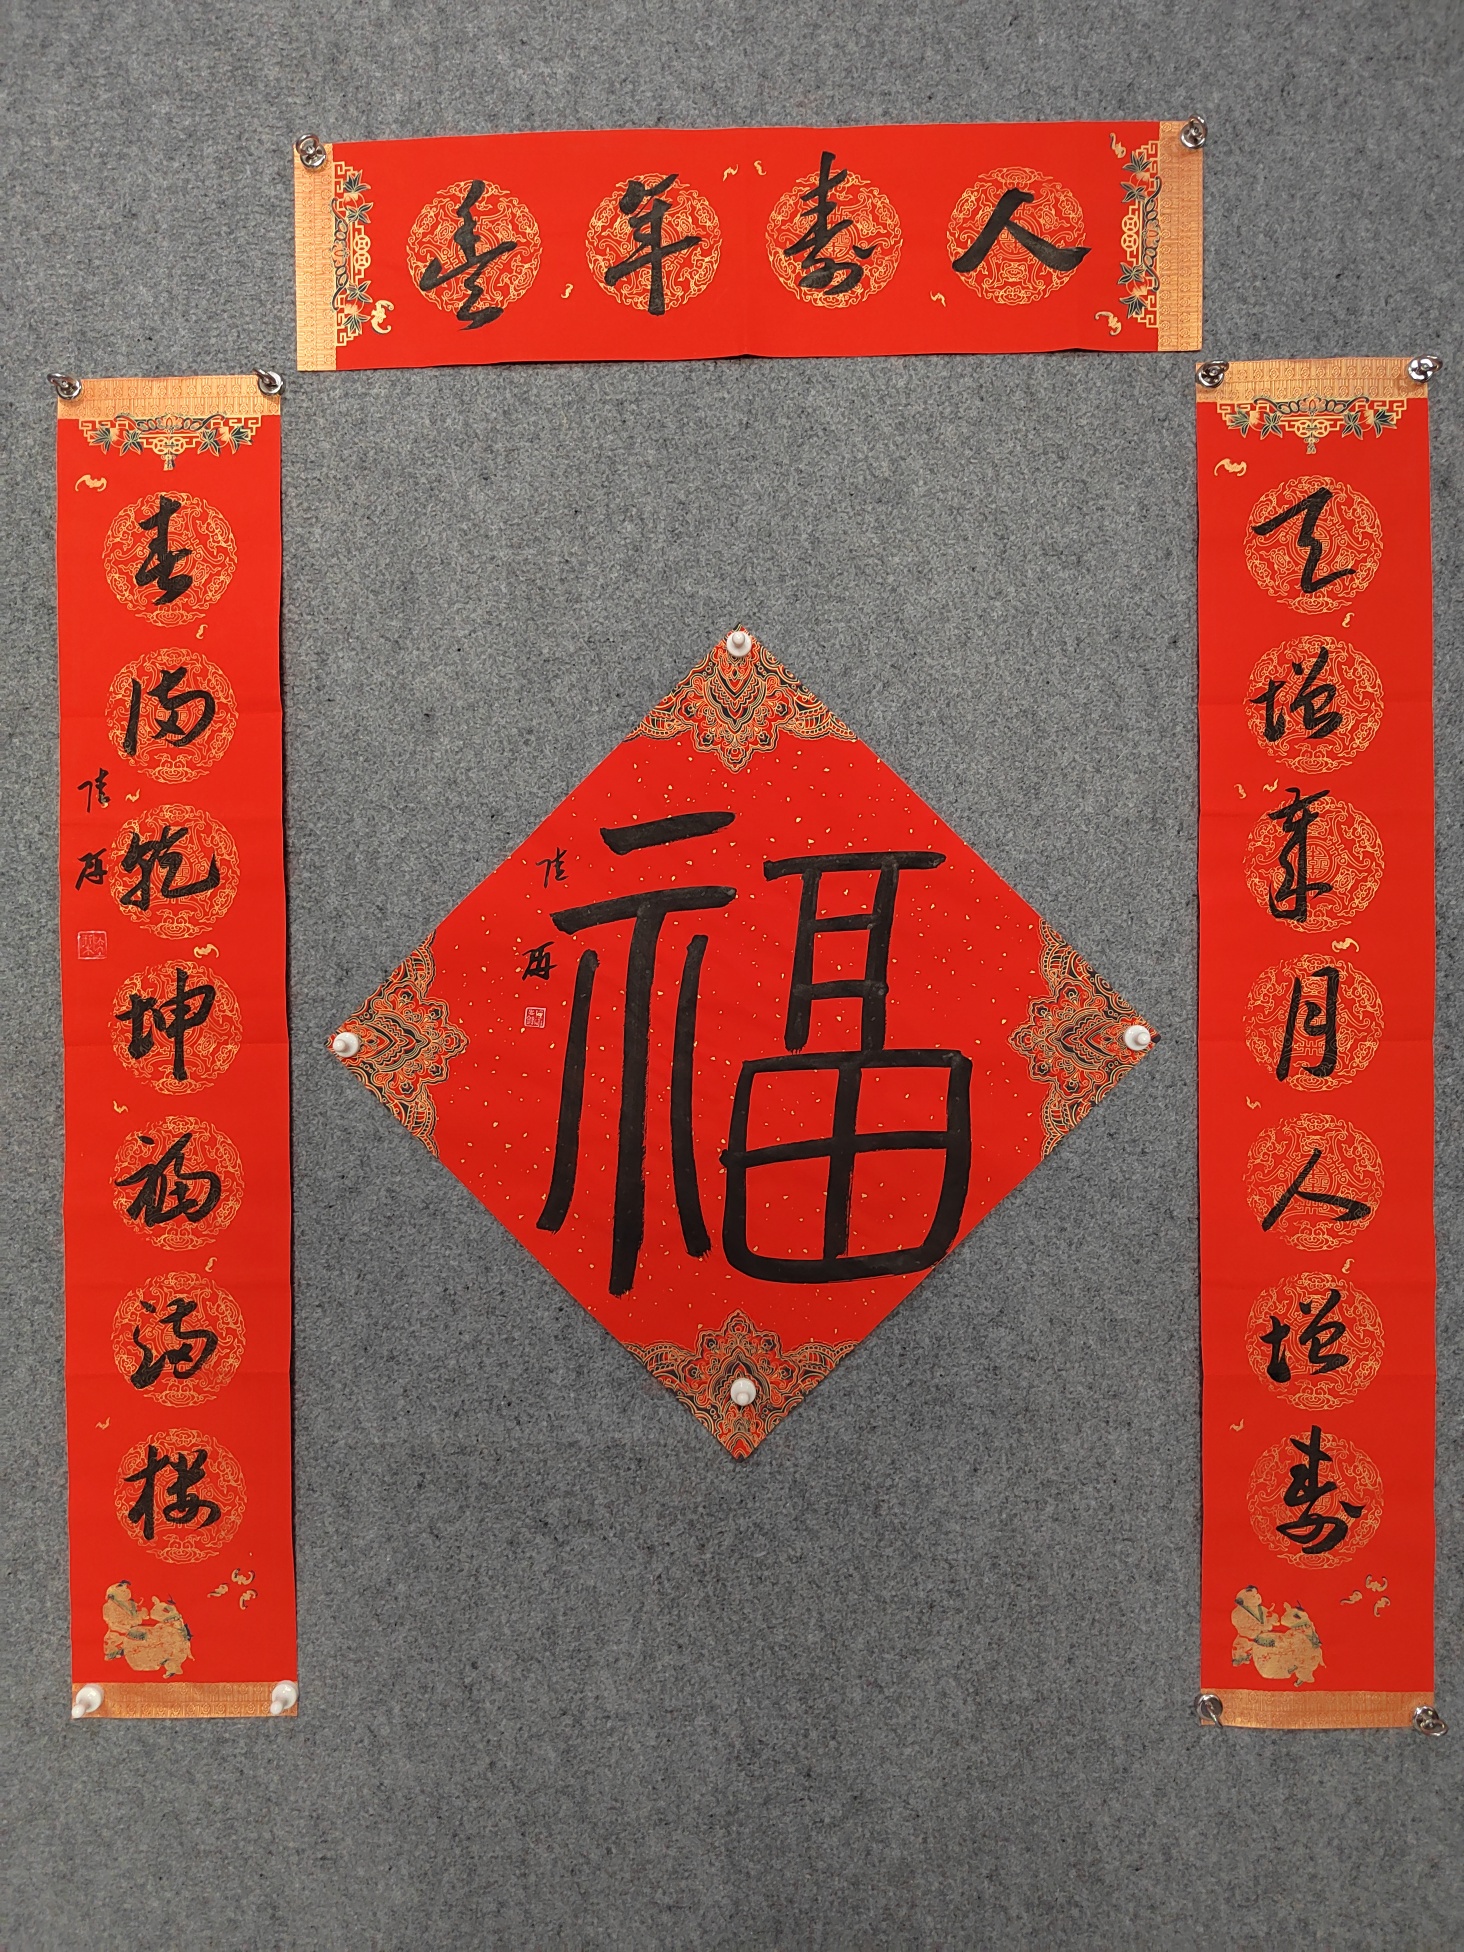 人寿年丰
天增岁月人增寿
春满乾坤福满楼
福